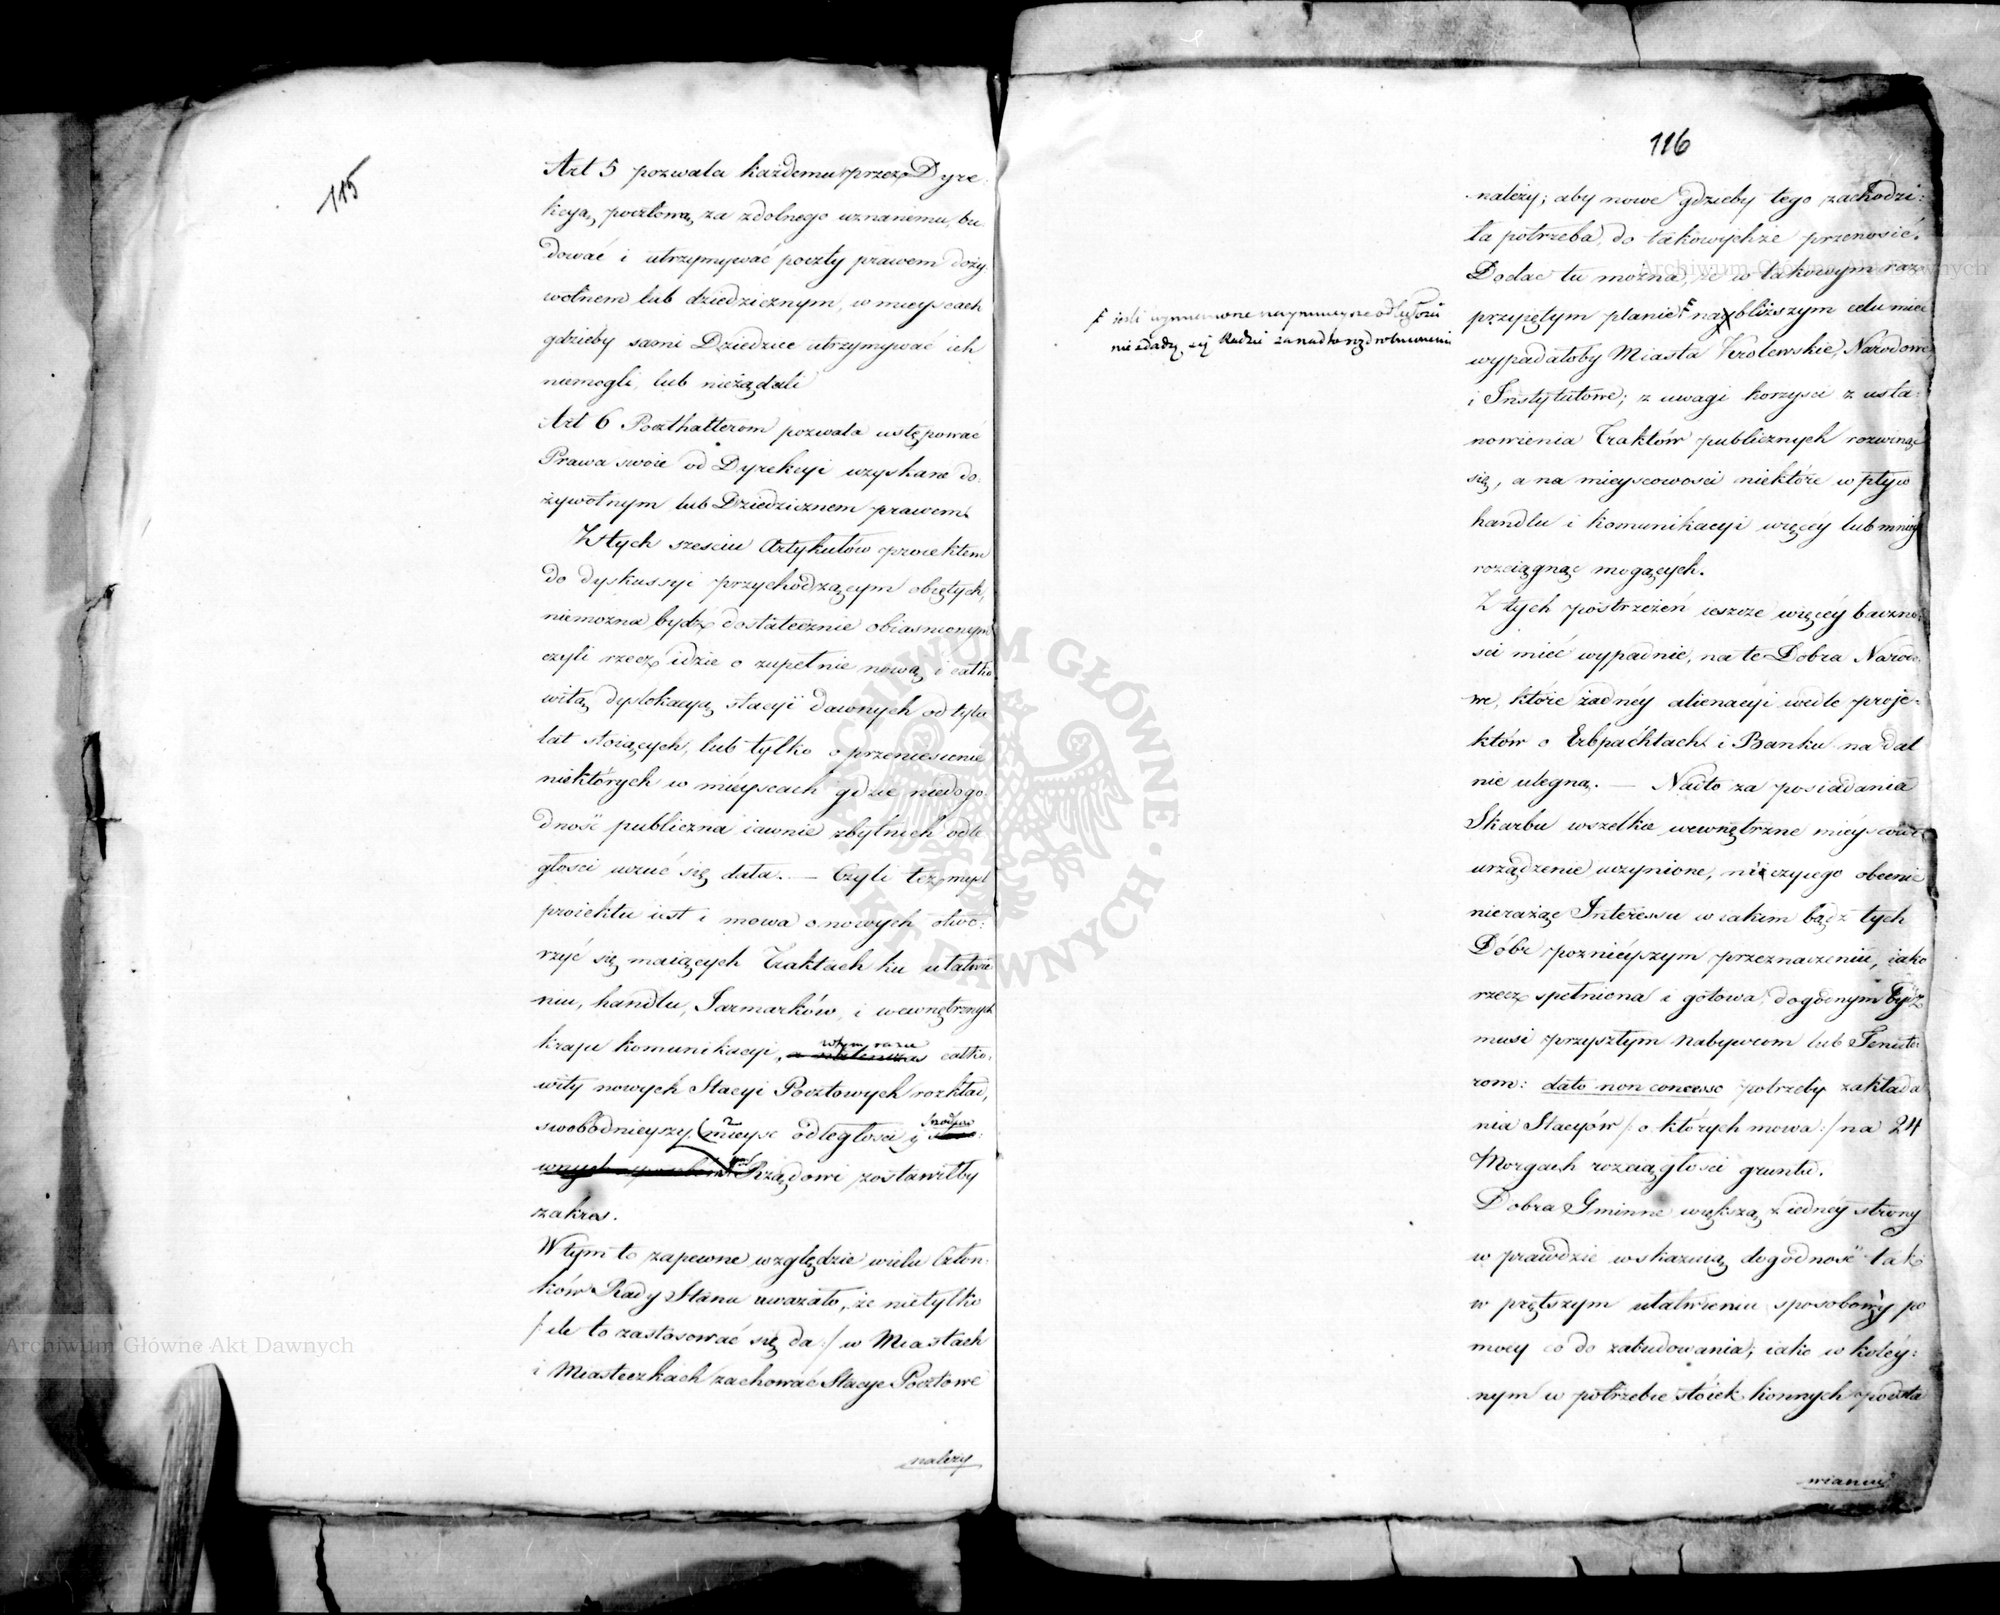 115
Art 5 pozwala każdemu przez Dyre-
kcyą pocztową za zdolnego uznanemu, bu-
dować i utrzymywać poczty prawem doży-
wotnem lub dziedzicznym, w mieyscach
gdzieby sami Dziedzice utrzymywać ich
niemogli, lub nieżądali
Art 6 Poczthalterom pozwala ustępować
Prawa swoie od Dyrekcyi uzyskane do-
żywotnym lub Dziedzicznem prawem.
Z tych sześciu Artykułów proiektem
do dyskussyi przychodzącym obiętych,
niemożna bydź dostatecznie obiasnionym
czyli rzecz idzie o zupełnie nową i całko
witą dyslokacyą stacyi dawnych od tylu
lat stoiących, lub tylko o przeniesienie
niektórych w mieyscach gdzie niedogo-
dność publiczna iawnie zbytniéh odle
głości uczuć się dała. — Czyli też myśl
proiektu iest i mowa o nowych otwo-
rzyć się maiących Traktach ku ułatwie
niu, handlu, Jarmarków, i wewnętrznych
kraju komunikacyi, w tym razie całko-
wity nowych Stacyi Pocztowych rozkład,
swobodnieyszy mieysc odległości i
Rządowi zostawiłby
zakres.
W tym to zapewne względzie wielu Człon-
ków Rady Stanu uważało, że nietylko
/: ile to zastosować się da :/ w Miastach
i Miasteczkach zachować Stacye Pocztowe
należy
116
należy; aby nowe gdzieby tego zachodzi-
ła potrzeba, do takowychże przenosić.
Dodac tu można, że w takowym raz
przyiętym planie F naybliższym celu mieć
wypadałoby Miasta Krolewskie, Narodowe
i Instytutowe; z uwagi korzysci z usta-
nowienia Traktów publicznych rozwinąć
się, a na mieyscowosci niektóre wpływ
handlu i komunikacyi więcéy lub mniéy
rozciągnąć mogących.
Z tych postrzeżeń ieszcze więcéy baczno-
sci miéć wypadnie, na te Dobra Narodo-
we, które żadnéy alienacyi wedle proje-
któw o Erbpachtach i Banku na dal
nie ulegną. — Nadto za posiadania
Skarbu wszelkie wewnętrzne mieyscowe
urządzenie uczynione, niczyiego obecnie
nierażąc Interessu w iakim bądź tych
Dóbr poznieyszym przeznaczeniu, iako
rzecz spełniona i gotowa, dogodnym bydź
musi przyszłym Nabywcom lub Tenuto
rom: dato non concesso potrzeby zakłada
nia Stacyów /: o których mowa :/ na 24
Morgach rozciągłości gruntu.
Dobra Gminne większą z iednéy strony
w prawdzie wskazuią dogodność tak
w prętszym ułatwieniu sposobowy po
mocy co do zabudowania; iako w koléy-
nym w potrzebie stóiek konnych podsta
wianiu
F iesli wymienione odległości
nie zdadzą się Radzie